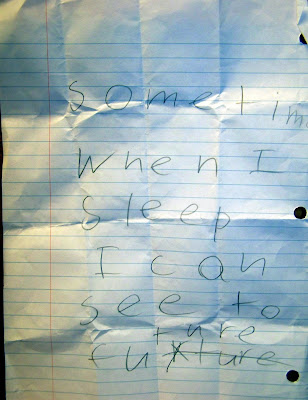 sometim
when I
sleep
I can
see to
ture
fuxture